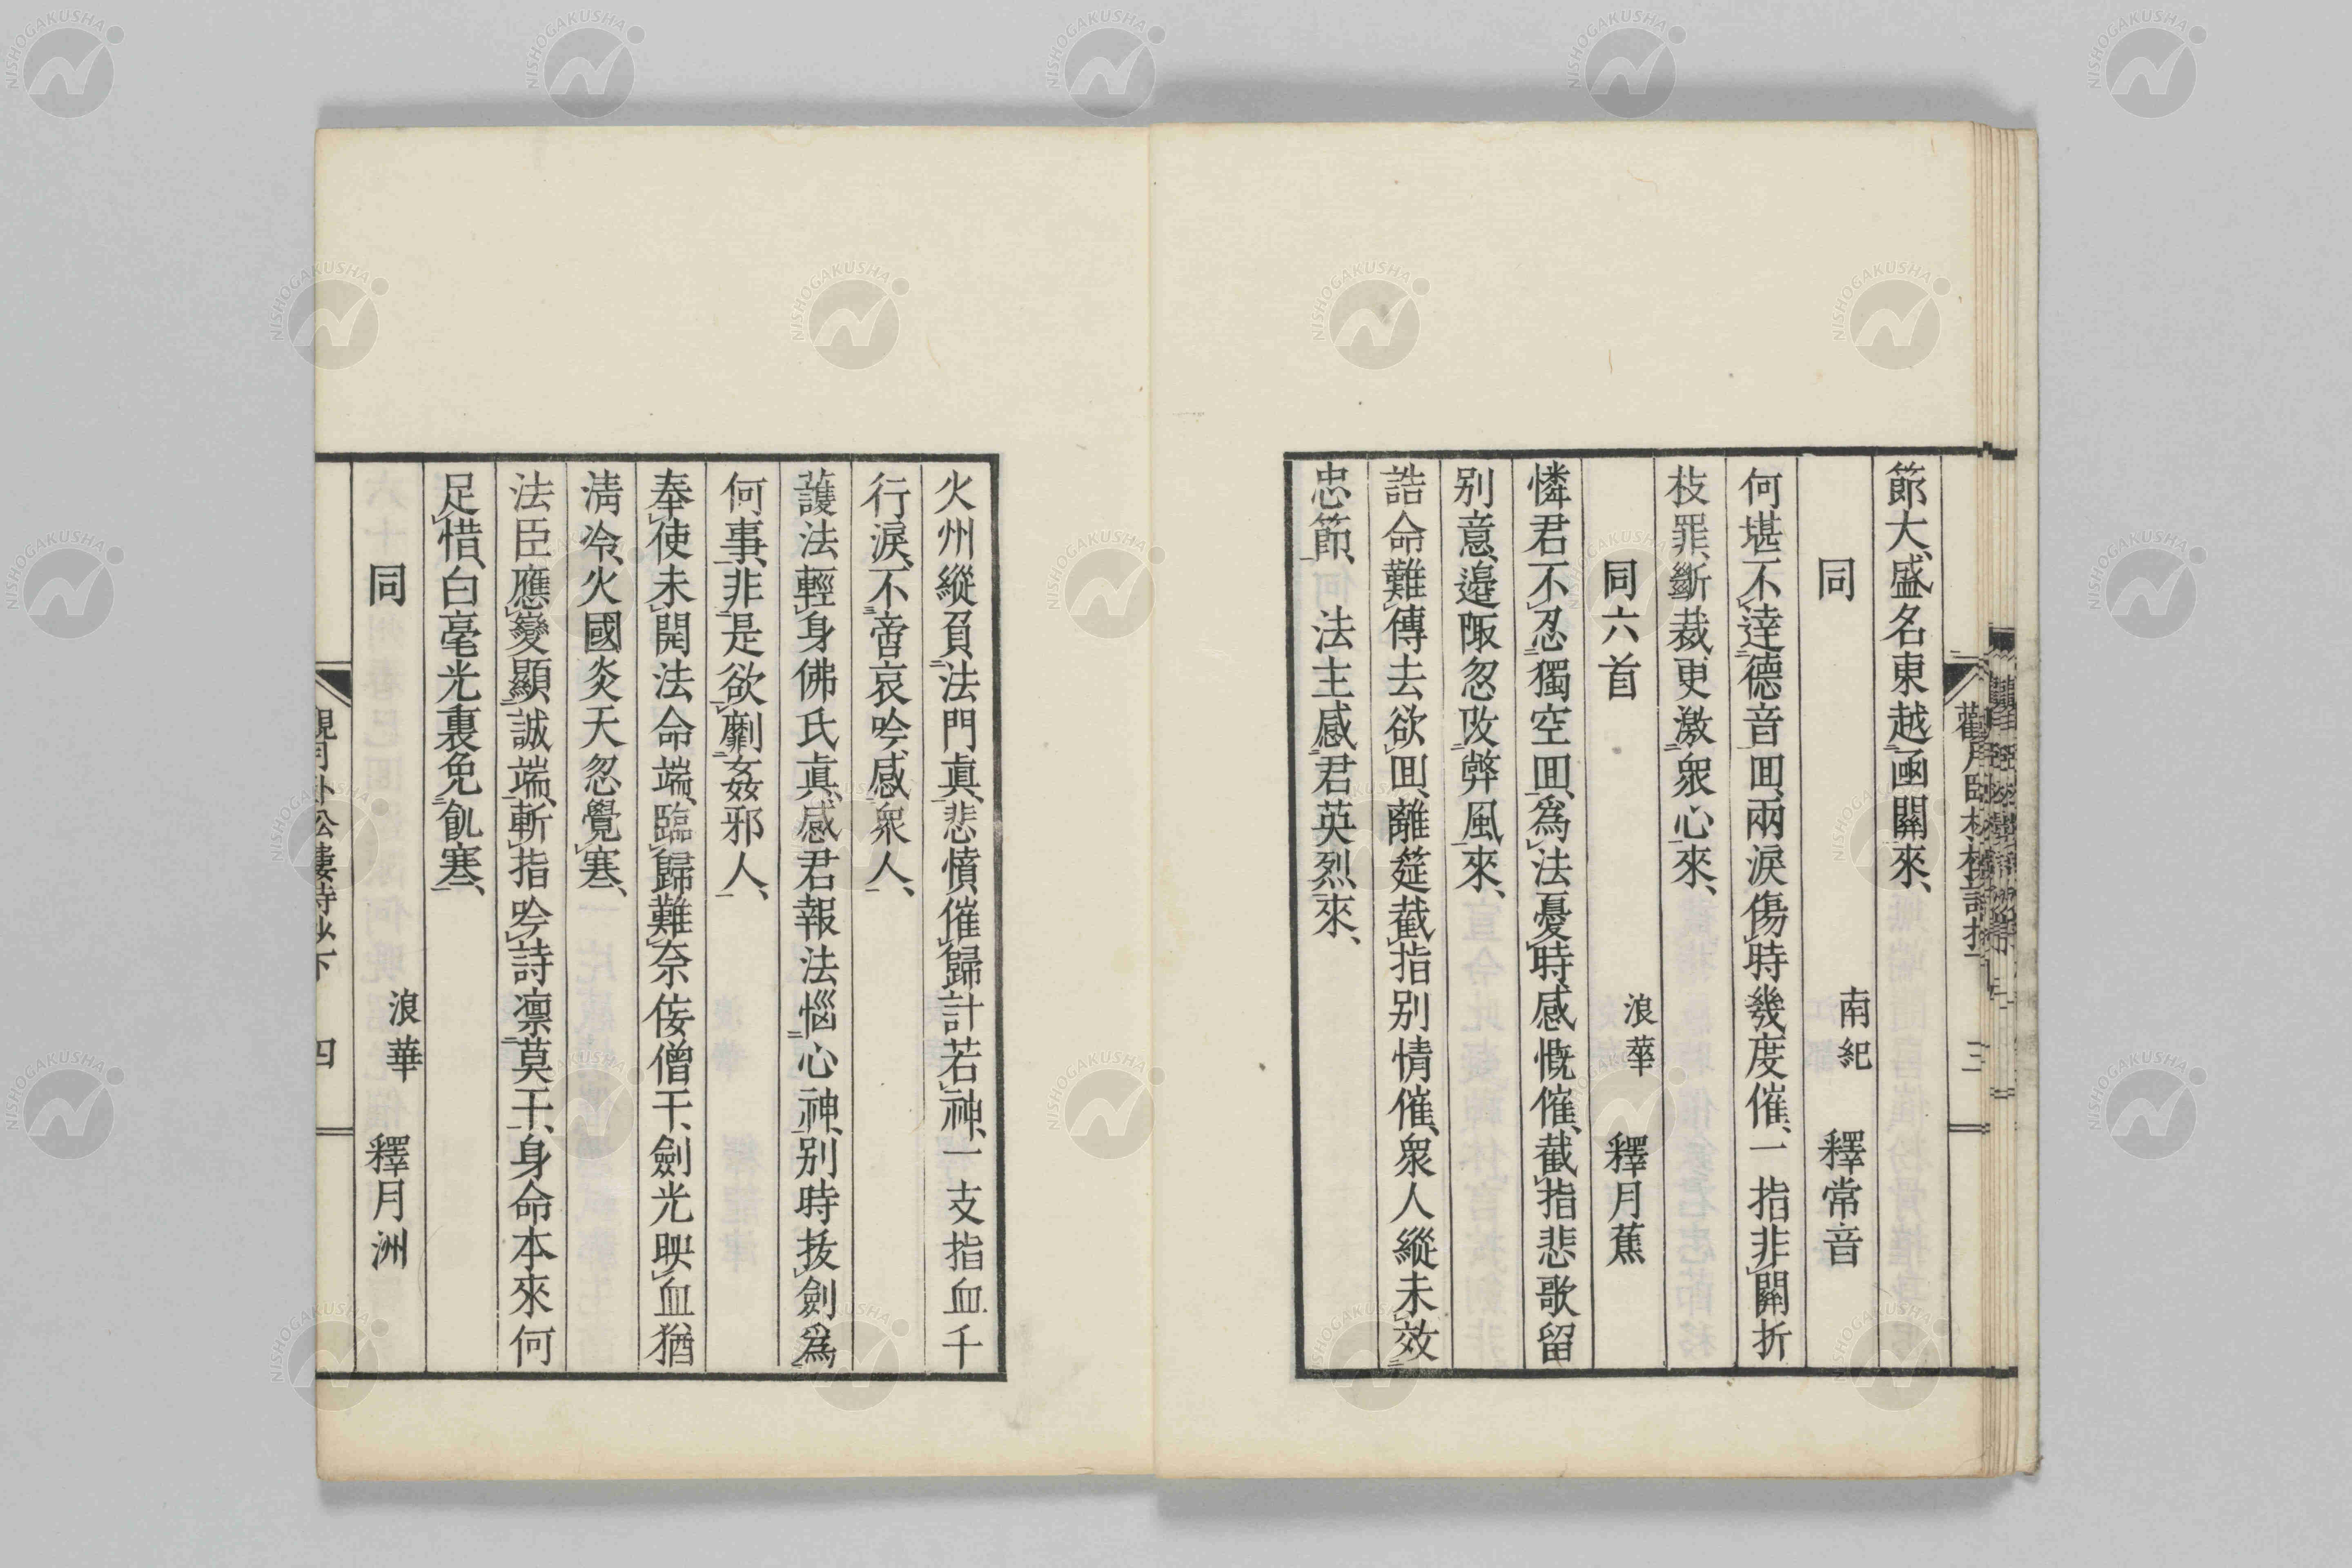 節大、盛名東越函關來、
同　南紀　釋常音
何堪不達德音囬、兩淚傷時幾度催、一指非關折
枝罪、斷裁更激衆心來、
同六首　浪華　釋月蕉
憐君不忍獨空囬、爲法憂時感慨催、截指悲歌留
別意、邉陬忽改弊風來、
誥命難傳去欲囬、離筵截指別情催、衆人縱未效
忠節、法主感君英烈來、
火州縱負法門眞、悲憤催歸計若神、一支指血千
行淚、不啻哀吟感衆人、
護法輕身佛氏眞、感君報法惱心神、別時拔劍爲
何事、非是欲劘姦邪人、
奉使未開法命端、臨歸難奈侫僧干、劍光映血猶
淸冷、火國炎天忽覺寒、
法臣應變顯誠端、斬指吟詩凛莫干、身命本來何
足惜、白毫光裏免飢寒、
同　浪華　釋月洲
四
NISHOGAKUSHA